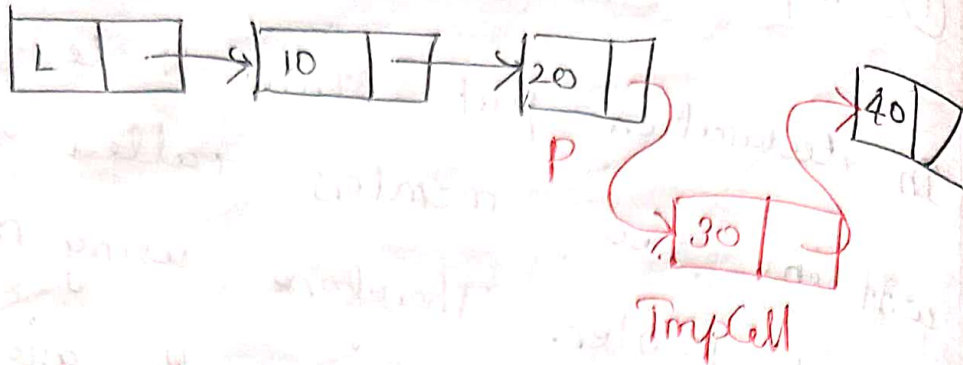 L 10 20 40
P
30
TmpCell